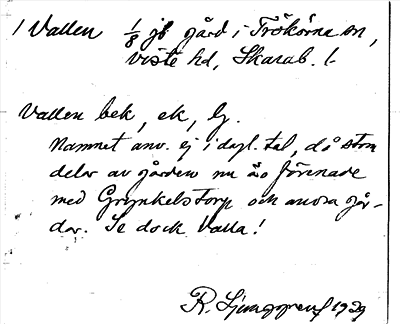 / Vallen 1/8 jb gård i Trökörna sn,
Viste hd, Skarab. l.
Vallen bek, ek, lj.
Namnet anv. ej i dagl. tal, då stora
delar av gården nu äro förenade
med Grynkelstorp och andra går-
dar. Se dock Valla!
R. Ljunggren 1929